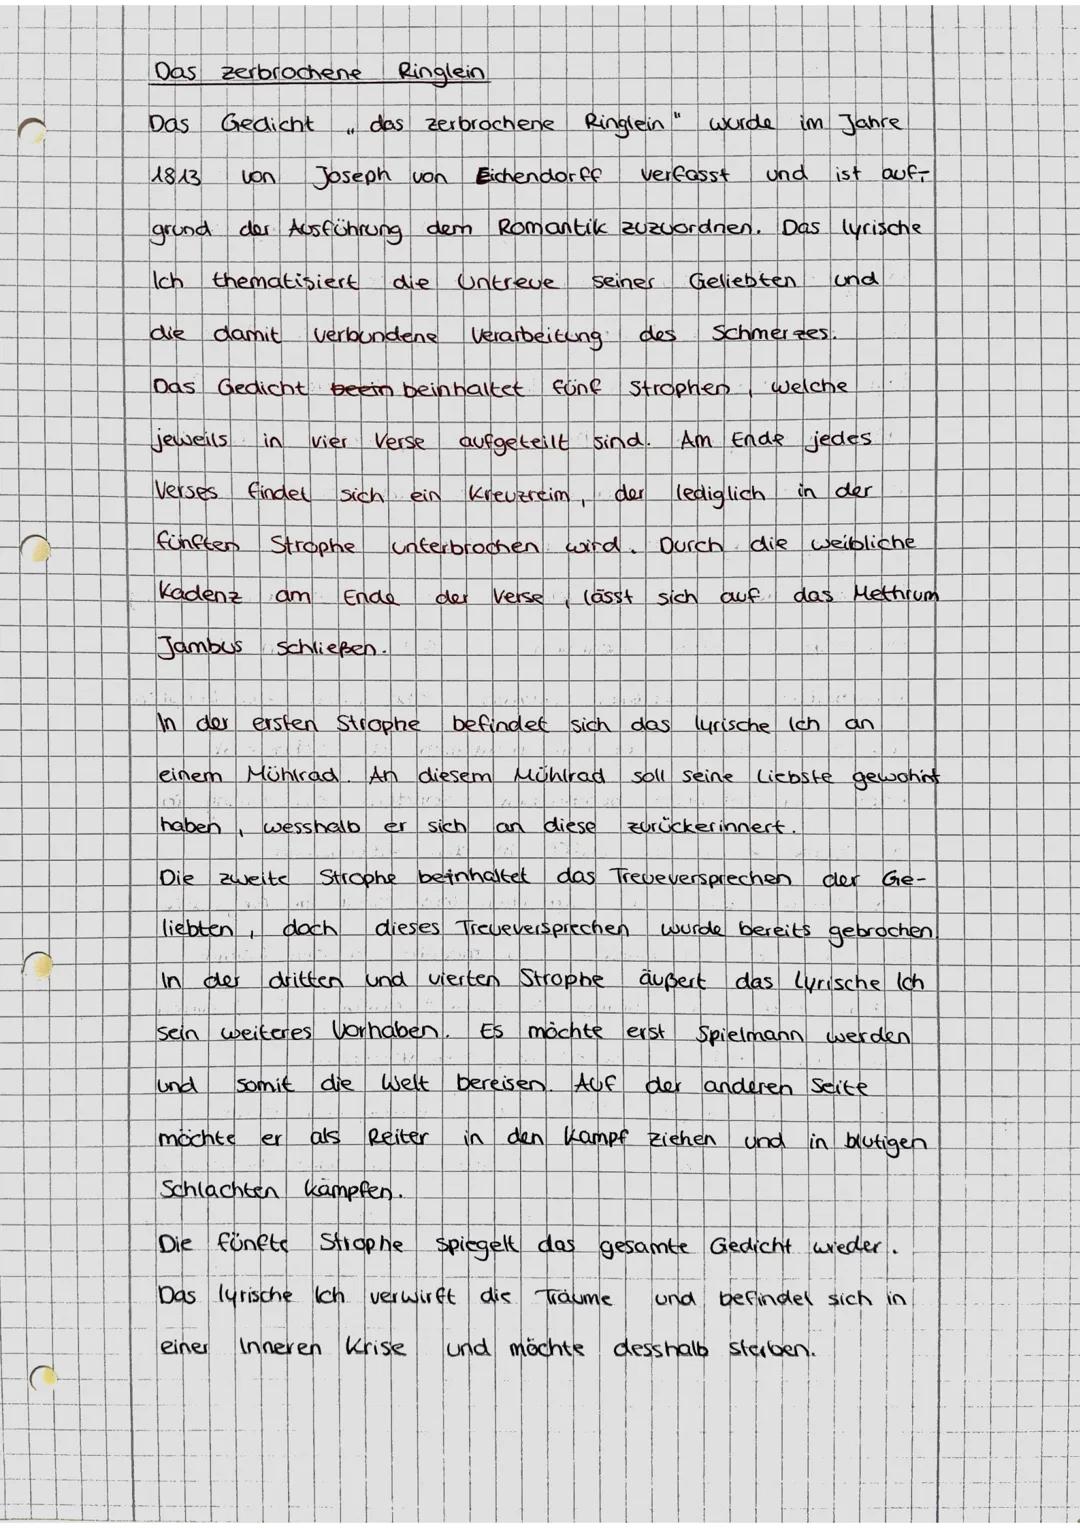 Das zerbrochene Ringlein
Das Gedicht „das zerbrochene Ringlein" wurde im Jahre
1813 von Joseph von Eichendorff verfasst und ist auf-
grund der Ausführung dem Romantik zuzuordnen. Das lyrische
Ich thematisiert die Untreue seiner Geliebten und
die damit verbundene Verarbeitung des Schmerzes.
Das Gedicht beein beinhaltet fünf Strophen, welche
jeweils in vier Verse aufgeteilt sind. Am Ende jedes
Verses findet sich ein Kreuzreim, der lediglich in der
fünften Strophe unterbrochen wird. Durch die weibliche
Kadenz am Ende der Verse, lässt sich auf das Methrum
Jambus schließen.
In der ersten Strophe befindet sich das lyrische Ich an
einem Mühlrad. An diesem Mühlrad soll seine Liebste gewohnt
haben, wesshalb er sich an diese zurückerinnert.
Die zweite Strophe beinhaltet das Treueversprechen der Ge-
liebten, doch dieses Treueversprechen wurde bereits gebrochen.
In der dritten und vierten Strophe äußert das Lyrische Ich
sein weiteres Vorhaben. Es möchte erst Spielmann werden
und somit die Welt bereisen. Auf der anderen Seite
möchte er als Reiter in den Kampf ziehen und in blutigen
Schlachten kämpfen.
Die fünfte Strophe spiegelt das gesamte Gedicht wieder.
Das lyrische Ich verwirft die Träume und befindet sich in
einer Inneren Krise und möchte desshalb sterben.